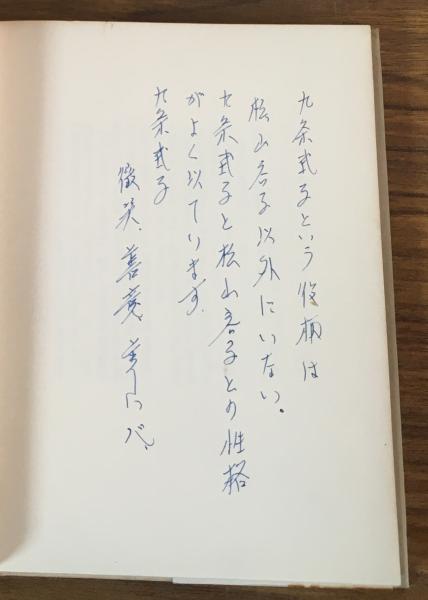 九条武子という役柄は
松山容子以外にいない。
九条武子と松山容子との性格
がよく以ています。
九条武子
微笑、善意、